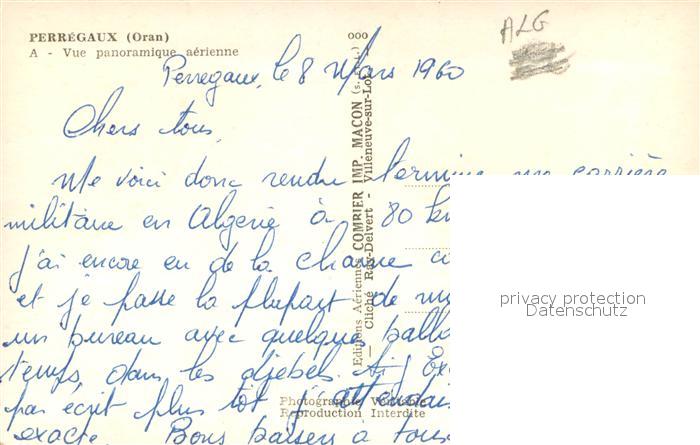 PERRÉGAUX (Oran)
A - Vue panoramique aérienne
ALG
Perregaux, le 8 Mars 1960
Chers tous,
Me voici donc rendu terminer ma carrière
militaire en Algérie à 80 km
j'ai encore eu de la chance
et je passe la plupart de
un bureau avec quelque
temps, dans les djebels.
pas écrit plus tôt j'attendais
exacte. Bons baisers à tous
ooo
Editions Aériennes COMBIER IMP. MACON
— Cliché Ray-Delvert - Villeneuve-sur-Lot
Photographie Véritable
Reproduction Interdite
privacy protection
Datenschutz